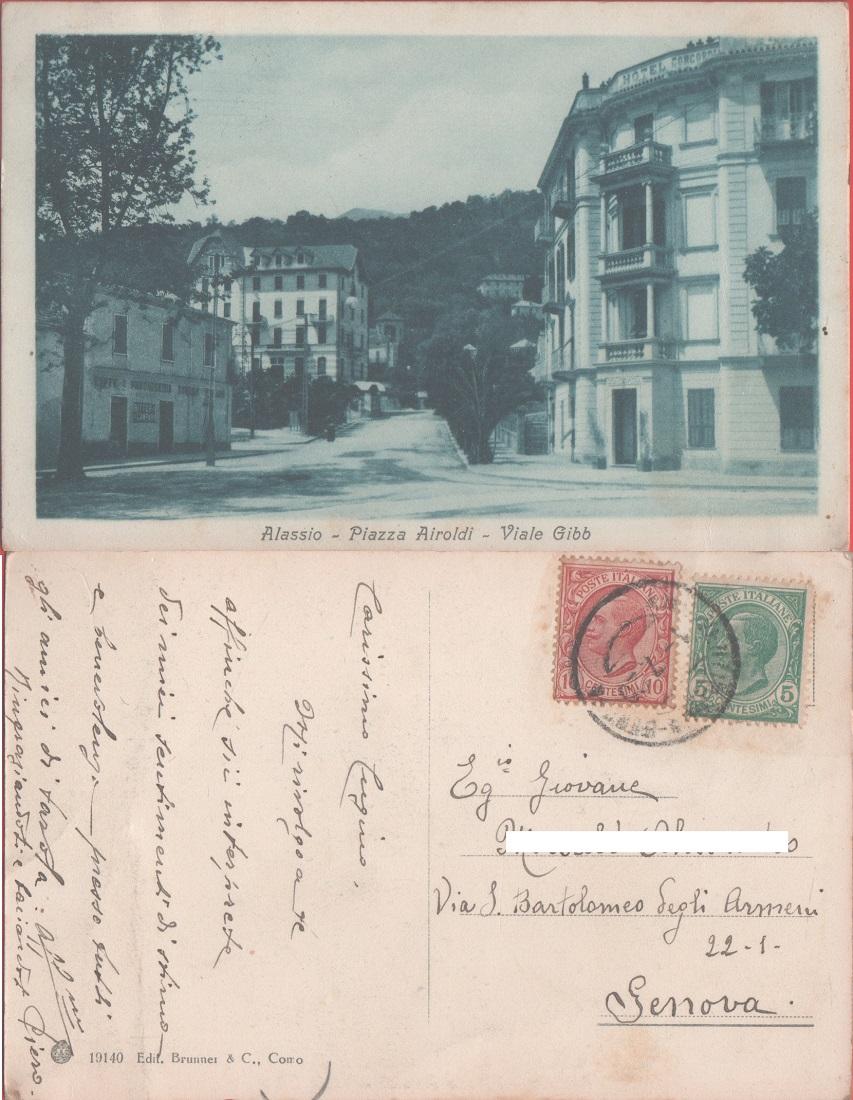 HOTEL CONCORDIA
CAFFÈ E
Alassio - Piazza Airoldi - Viale Gibb
POSTE ITALIANE
10 CENTESIMI 10
POSTE ITALIANE
5 CENTESIMI 5
Carissimo Cugino,
Mi rivolgo a te
affinche sii interprete
dei miei sentimenti di stima
e benevolenza presso tutti
gli amici di tavola:
Ringraziandoti e baciandoti Piero.
Eg io Giovane
Via S. Bartolomeo degli Armeni
22-1-
Genova.
19140 Edit. Brunner & C., Como